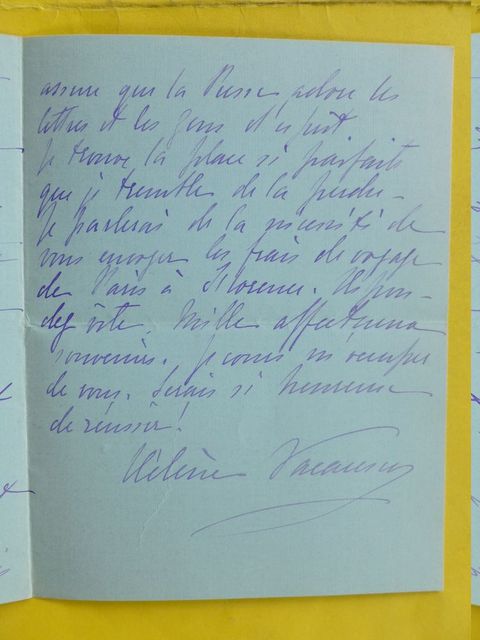 assure que la Russe adore les
lettres et les gens d'esprit
Je trouve la place si parfaite
que je tremble de la perdre.
Je parlerai de la nécessité de
vous envoyer les frais de voyage
de Paris à Florence. Répon-
dez vite, Mille affectueux
souvenirs. Je cours m'occuper
de vous. Serais si heureuse
de réussir!
Hélène Vacaresco